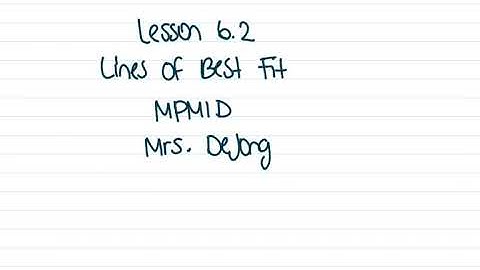 Lesson 6.2
Lines of Best Fit
MPM1D
Mrs. DeJong